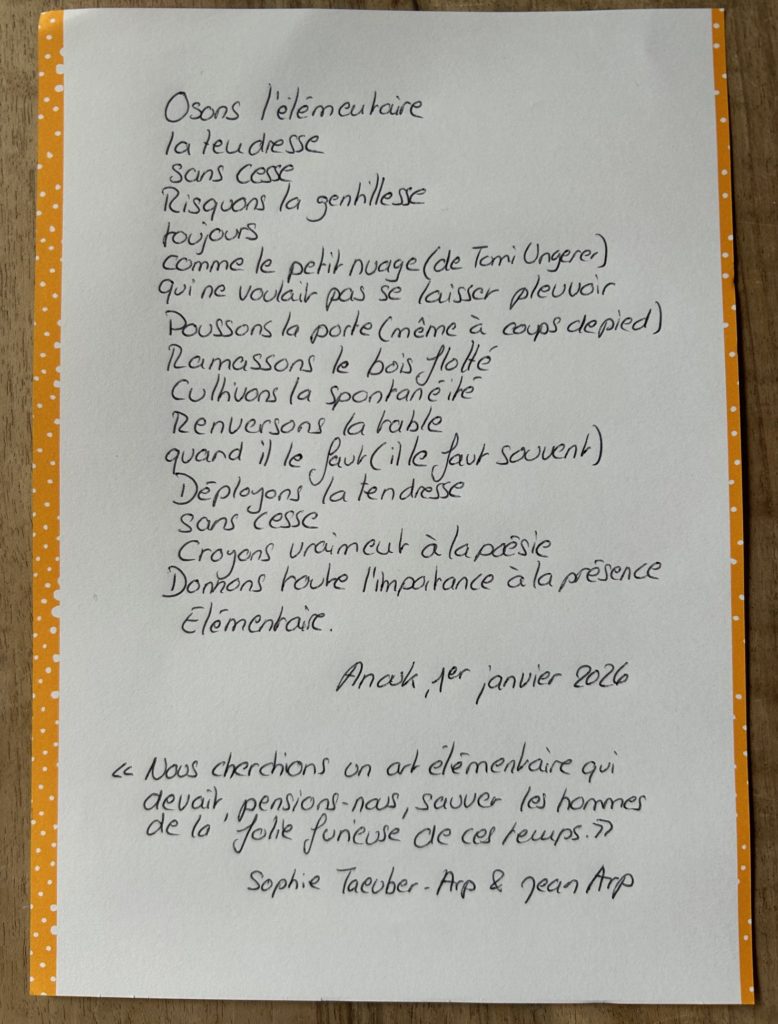 Osons l'élémentaire
la tendresse
sans cesse
Risquons la gentillesse
toujours
comme le petit nuage (de Tomi Ungerer)
qui ne voulait pas se laisser pleuvoir
Poussons la porte (même à coups de pied)
Ramassons le bois flotté
Cultivons la spontanéité
Renversons la table
quand il le faut (il le faut souvent)
Déployons la tendresse
sans cesse
Croyons vraiment à la poésie
Donnons toute l'importance à la présence
Elémentaire.
1er janvier 2026
« Nous cherchions un art élémentaire qui
devait, pensions-nous, sauver les hommes
de la folie furieuse de ces temps. »
Sophie Taeuber-Arp & Jean Arp